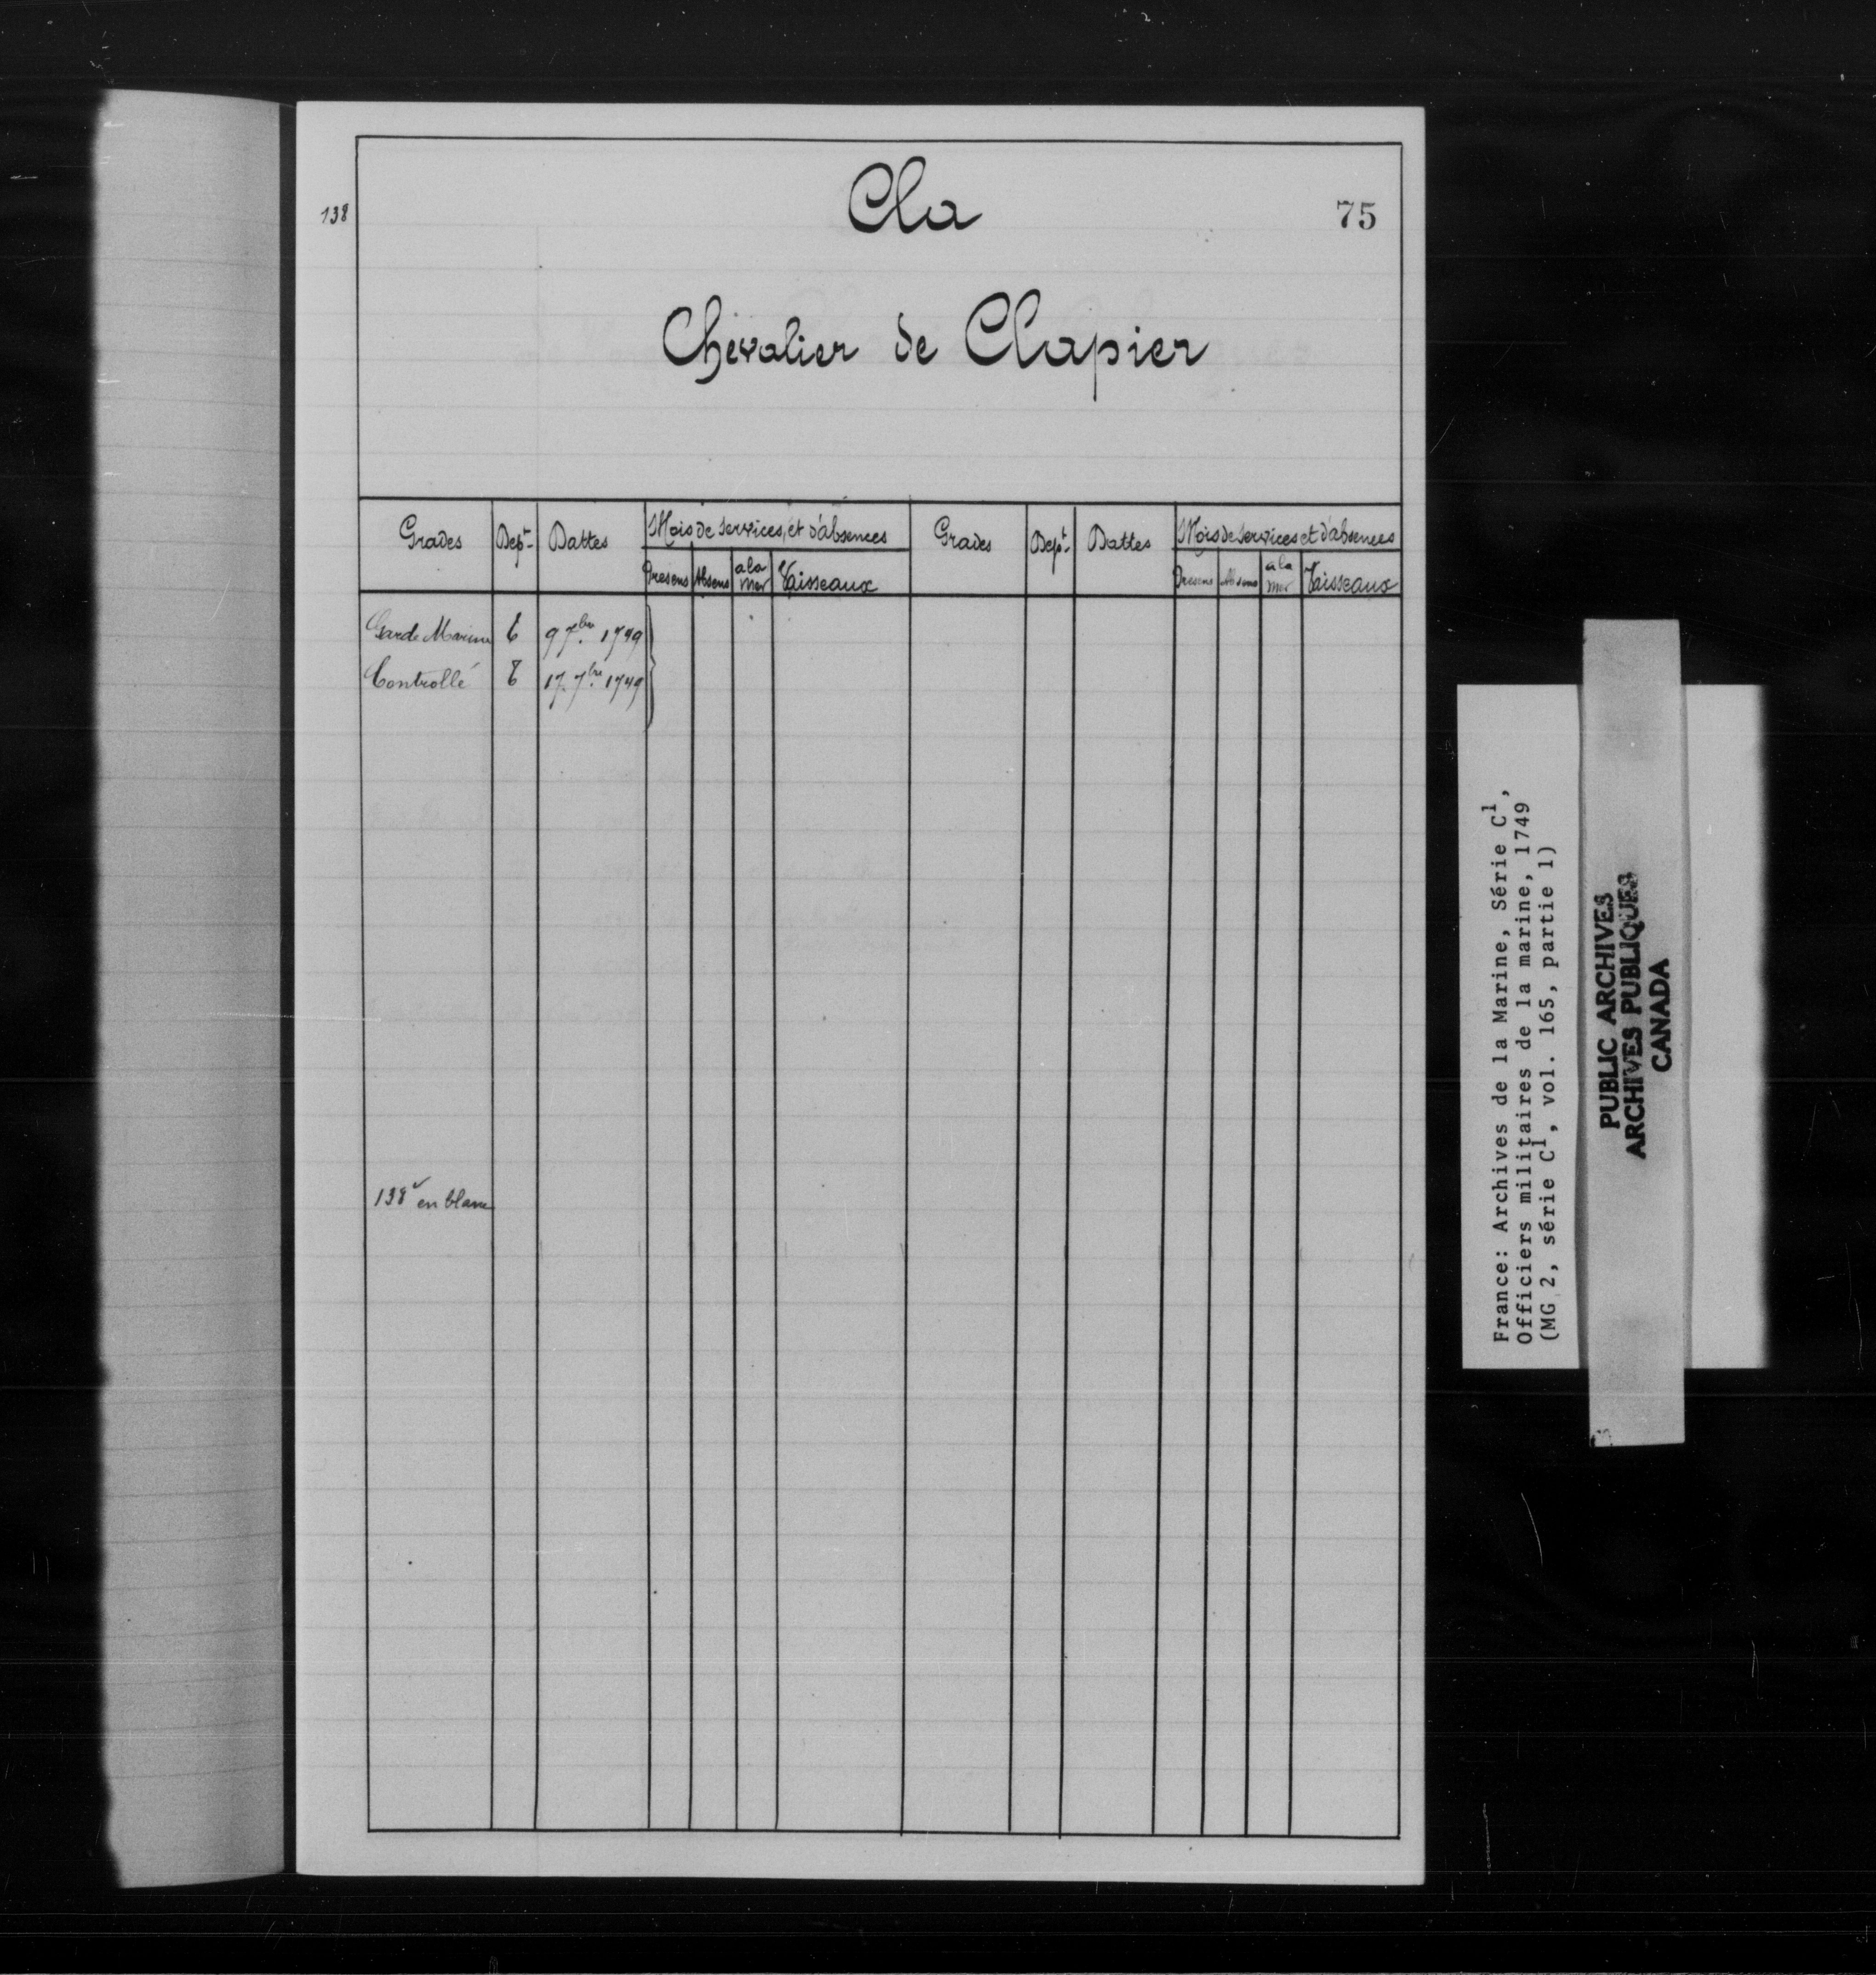 138
Cla
75
Chevalier de Clapier
Grades Dept. Dattes Mois de services, et d'absences Grades Dept. Dattes Mois de services et d'absences
Presens Absens a la mer Vaisseaux Presens Absens a la mer Vaisseaux
Garde Marine 9 7bre 1749
Controllé 17. 7bre 1749
138v en blanc
France: Archives de la Marine, Série C1,
Officiers militaires de la marine, 1749
(MG 2, série C1, vol. 165, partie 1)
PUBLIC ARCHIVES
ARCHIVES PUBLIQUES
CANADA